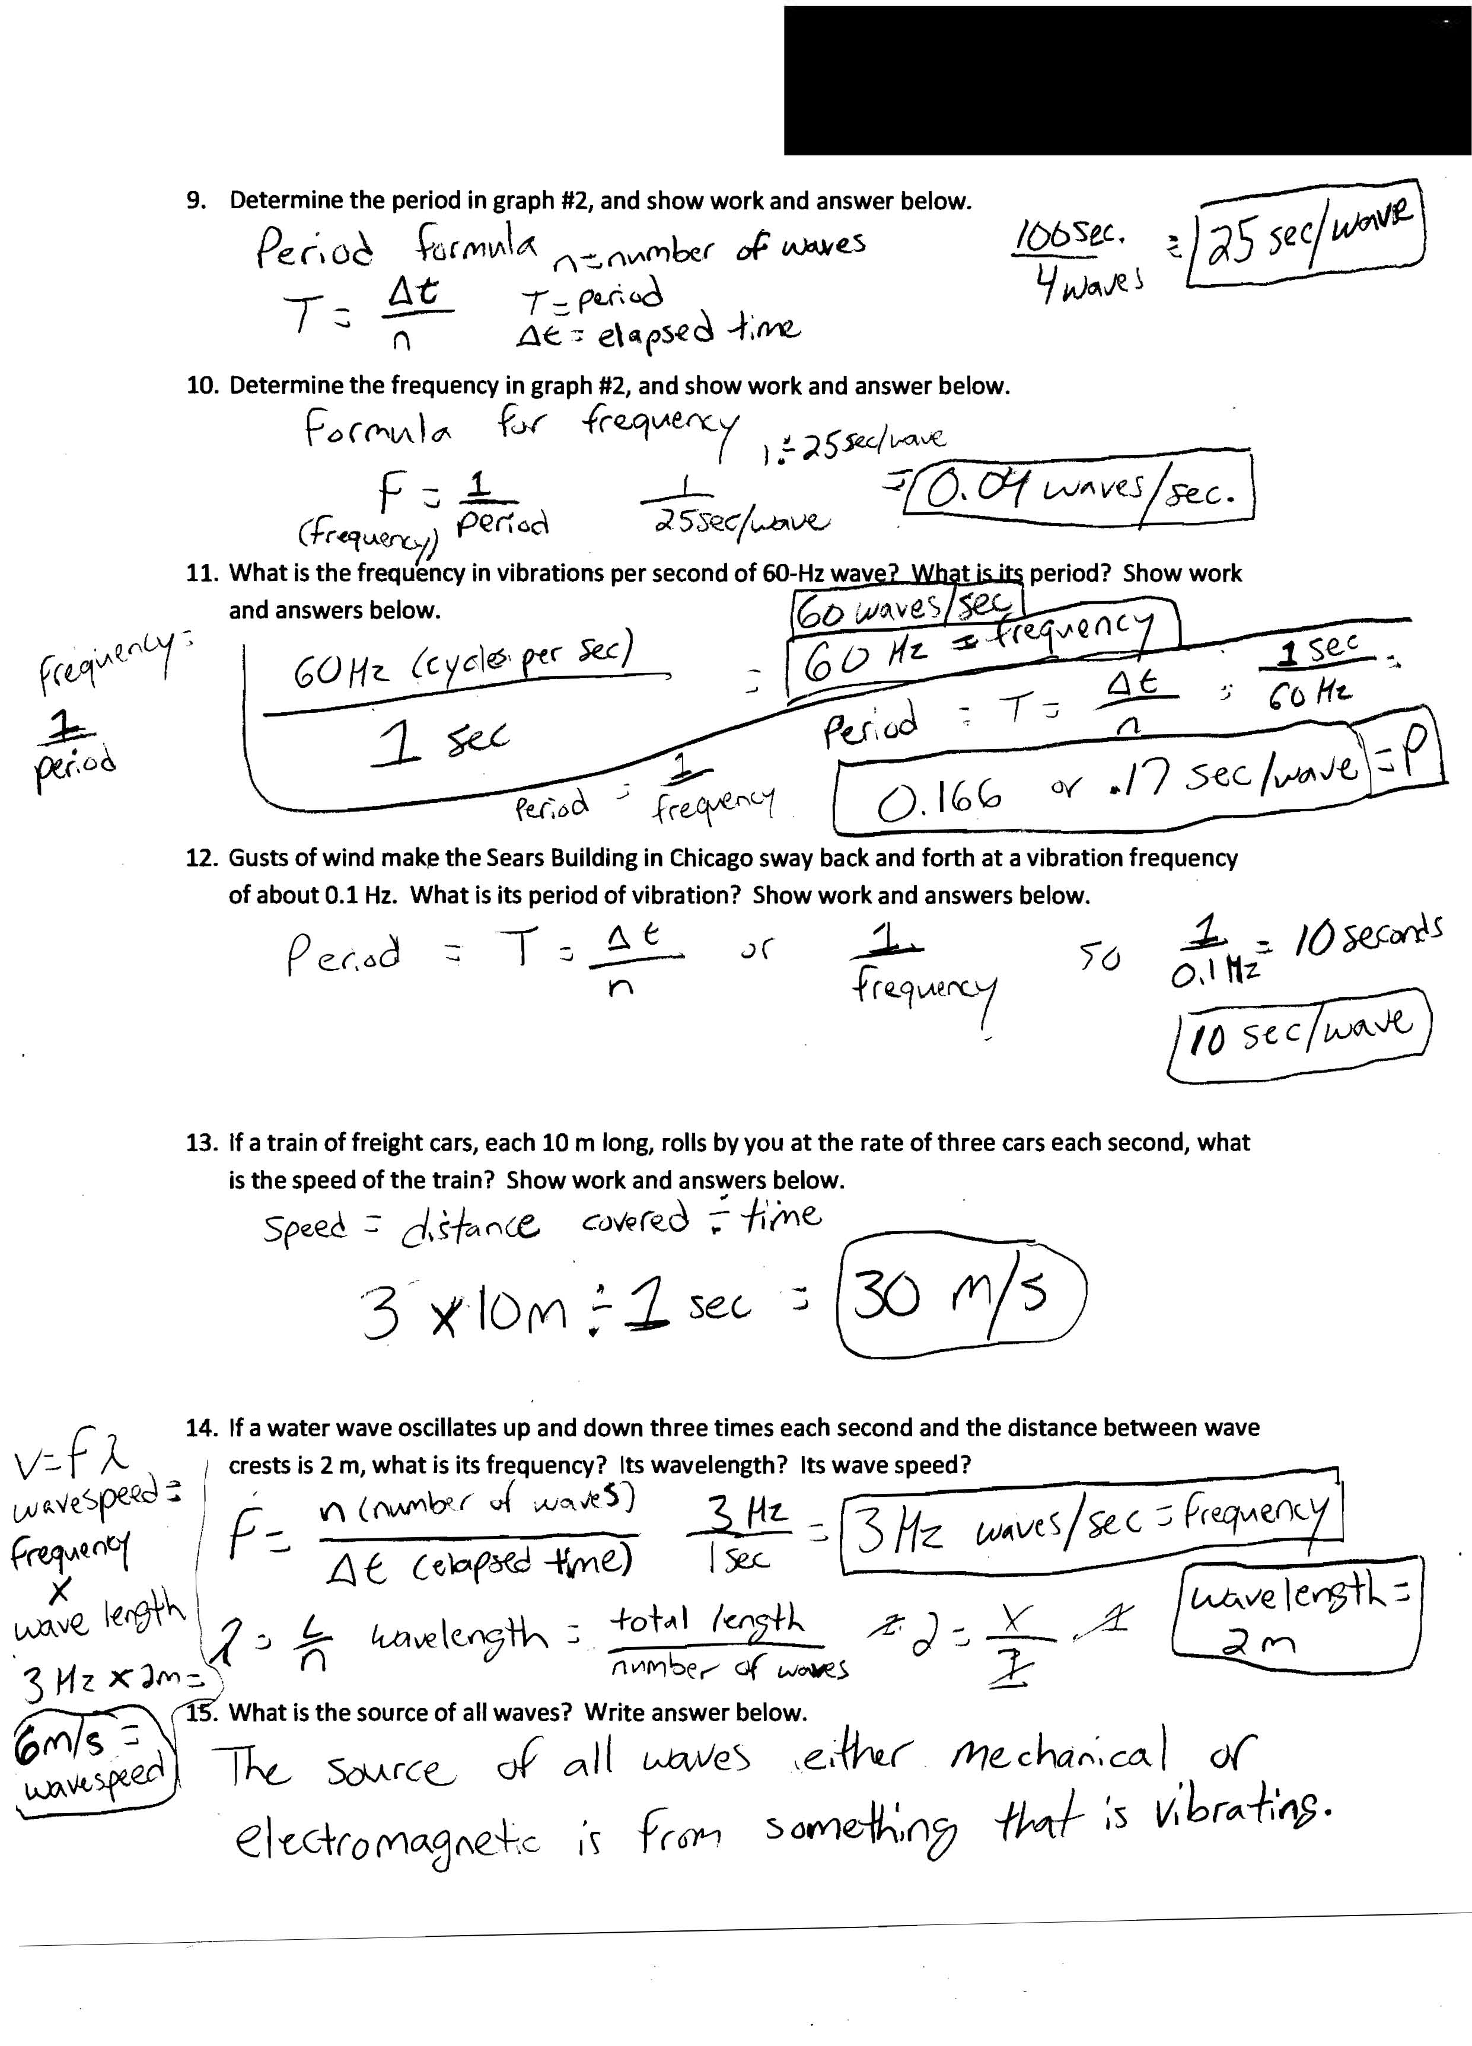 9. Determine the period in graph #2, and show work and answer below.
Period formula n=number of waves
T = Δt/n
T = period
Δt = elapsed time
100 sec. / 4 waves = 25 sec/wave
10. Determine the frequency in graph #2, and show work and answer below.
Formula for frequency
1 ÷ 25 sec/wave
F = 1/period
(frequency)
1 / 25 sec/wave = 0.04 waves/sec.
11. What is the frequency in vibrations per second of 60-Hz wave? What is its period? Show work
and answers below.
frequency = 1/period
60 Hz (cycles per sec) / 1 sec = 60 Hz = frequency
60 waves/sec
Period = T = Δt/n = 1 sec / 60 Hz =
Period = 1/frequency
0.166 or .17 sec/wave = P
12. Gusts of wind make the Sears Building in Chicago sway back and forth at a vibration frequency
of about 0.1 Hz. What is its period of vibration? Show work and answers below.
Period = T = Δt/n or 1/frequency so 1/0.1 Hz = 10 seconds
10 sec/wave
13. If a train of freight cars, each 10 m long, rolls by you at the rate of three cars each second, what
is the speed of the train? Show work and answers below.
Speed = distance covered ÷ time
3 x 10m ÷ 1 sec = 30 m/s
14. If a water wave oscillates up and down three times each second and the distance between wave
crests is 2 m, what is its frequency? Its wavelength? Its wave speed?
v=fλ
wavespeed =
frequency
x
wave length
3 Hz x 2m =
6m/s =
wavespeed
F = n (number of waves) / Δt (elapsed time)
3 Hz / 1 sec = 3 Hz waves/sec = frequency
λ = L/n wavelength = total length / number of waves
wavelength =
2m
15. What is the source of all waves? Write answer below.
The source of all waves either mechanical or
electromagnetic is from something that is vibrating.